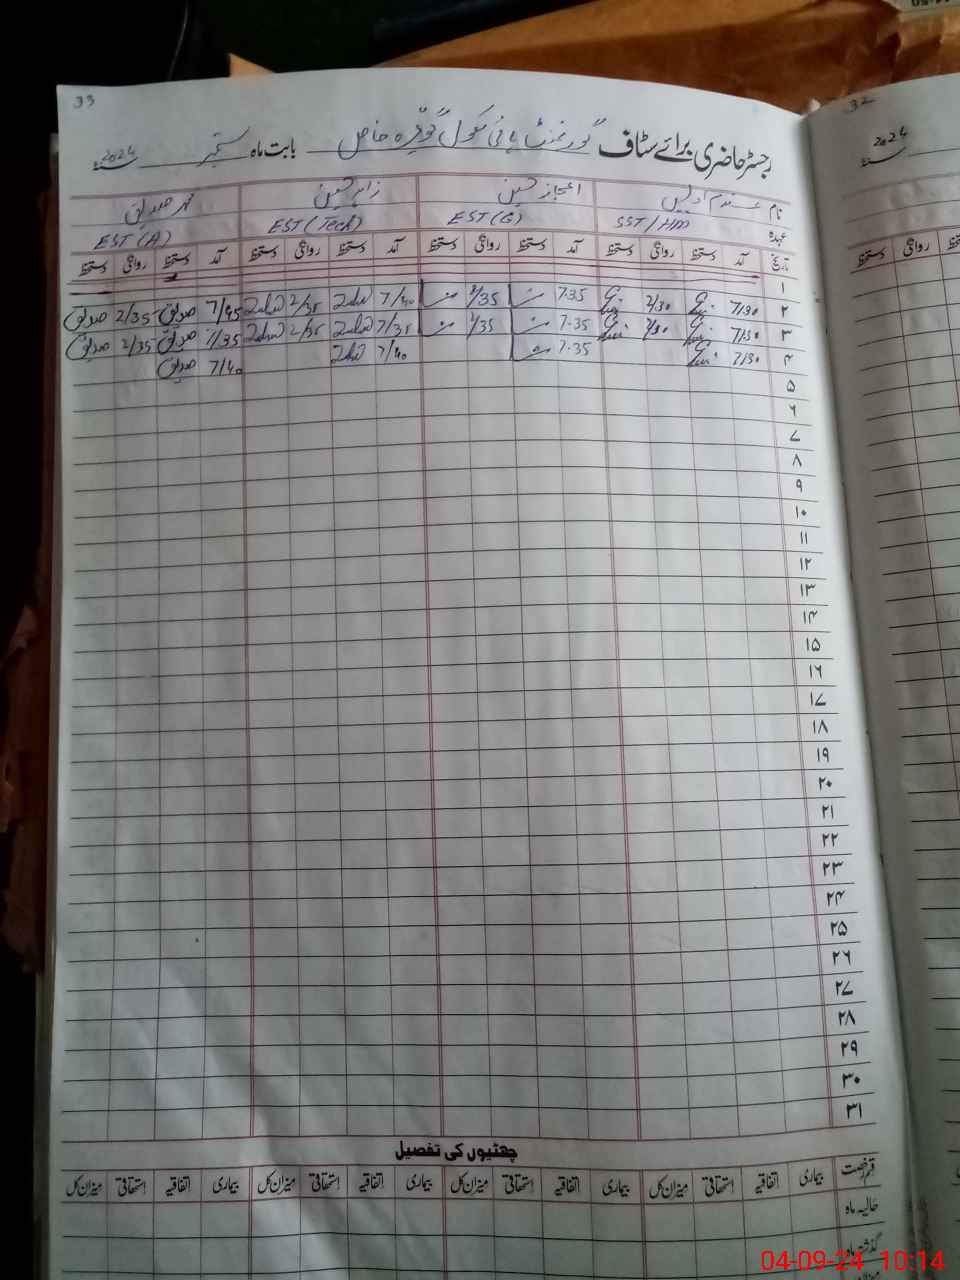 33
رجسٹر حاضری برائے سٹاف گورنمنٹ ہائی سکول بابت ماہ ستمبر سنہ 2024
نام اعجاز حسین زاہد حسین محمد صدیق
عہدہ SST/HM EST(G) EST(Tech) EST(A)
تاریخ آمد دستخط روانگی دستخط آمد دستخط روانگی دستخط آمد دستخط روانگی دستخط آمد دستخط روانگی دستخط
۱
۲ 7/30 2/30 7-35 2/35 7/40 Zahid 2/35 Zahid 7/45 صدیق 2/35 صدیق
۳ 7/30 2/30 7-35 2/35 7/35 Zahid 2/35 Zahid 7/35 صدیق 2/35 صدیق
۴ 7/30 7-35 7/40 Zahid 7/40 صدیق
۵
۶
۷
۸
۹
۱۰
۱۱
۱۲
۱۳
۱۴
۱۵
۱۶
۱۷
۱۸
۱۹
۲۰
۲۱
۲۲
۲۳
۲۴
۲۵
۲۶
۲۷
۲۸
۲۹
۳۰
۳۱
چھٹیوں کی تفصیل
قسم رخصت بیماری اتفاقیہ استحقاقی میزان کل بیماری اتفاقیہ استحقاقی میزان کل بیماری اتفاقیہ استحقاقی میزان کل بیماری اتفاقیہ استحقاقی میزان کل
حالیہ ماہ
گذشتہ ماہ
32
سنہ 2024
دستخط روانگی دستخط
04-09-24 10:14